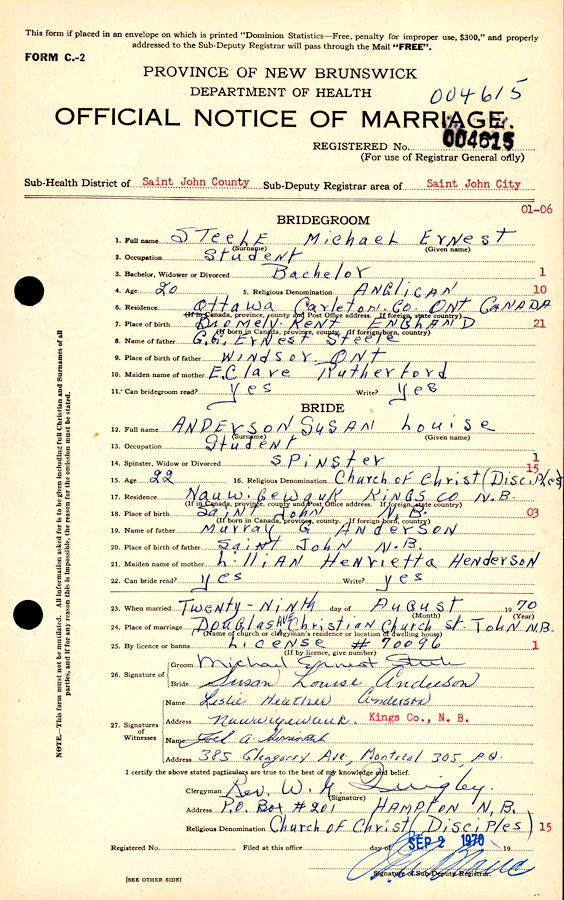 This form if placed in an envelope on which is printed "Dominion Statistics—Free, penalty for improper use, $300," and properly
addressed to the Sub-Deputy Registrar will pass through the Mail "FREE".
FORM C.-2
PROVINCE OF NEW BRUNSWICK
DEPARTMENT OF HEALTH
004615
OFFICIAL NOTICE OF MARRIAGE
REGISTERED No. 004615
(For use of Registrar General only)
Sub-Health District of Saint John County Sub-Deputy Registrar area of Saint John City
01-06
BRIDEGROOM
1. Full name STEELE Michael Ernest
(Surname) (Given name)
2. Occupation Student
3. Bachelor, Widower or Divorced Bachelor 1
4. Age 20 5. Religious Denomination ANGLICAN 10
6. Residence Ottawa Carleton Co. ONT CANADA
(If in Canada, province, county and Post Office address. If foreign, state country)
7. Place of birth Kent ENGLAND 21
(If born in Canada, province, county. If foreign born, country)
8. Name of father Ernest Steele
9. Place of birth of father WINDSOR ONT
10. Maiden name of mother E. Clare Rutherford
11. Can bridegroom read? yes Write? yes
BRIDE
12. Full name ANDERSON SUSAN Louise
(Surname) (Given name)
13. Occupation Student
14. Spinster, Widow or Divorced SPINSTER 1
15
15. Age 22 16. Religious Denomination Church of Christ (Disciples
17. Residence KINGS CO N.B.
(If in Canada, province, county and Post Office address. If foreign, state country)
18. Place of birth Saint John N.B. 03
(If born in Canada, province, county. If foreign born, country)
19. Name of father Murray G ANDERSON
20. Place of birth of father Saint John N.B.
21. Maiden name of mother Lillian Henrietta Henderson
22. Can bride read? yes Write? yes
23. When married Twenty-Ninth day of August 1970
(Month) (Year)
24. Place of marriage Douglas AVE Christian Church St. John N.B.
(Name of church or clergyman's residence or location of dwelling house)
25. By licence or banns License #70096 1
(If by licence, give number)
26. Signature of Groom Michael Ernest Steele
Bride Susan Louise Anderson
27. Signatures of Witnesses
Name Leslie Heather Anderson
Address Kings Co., N. B.
Name A.
Address 385 Glengarry Ave, Montreal 305, P.Q.
I certify the above stated particulars are true to the best of my knowledge and belief.
Clergyman Rev. W. Quigley.
(Signature)
Address P.O. Box #201 HAMPTON N.B.
Religious Denomination Church of Christ (Disciples) 15
Registered No. Filed at this office day of SEP 2 1970 19
Signature of Sub-Deputy Registrar.
[SEE OTHER SIDE]
NOTE.—This form must not be mutilated. All information asked for is to be given including full Christian and Surnames of all
parties, and if for any reason this is impossible, the reason for the omission must be stated.